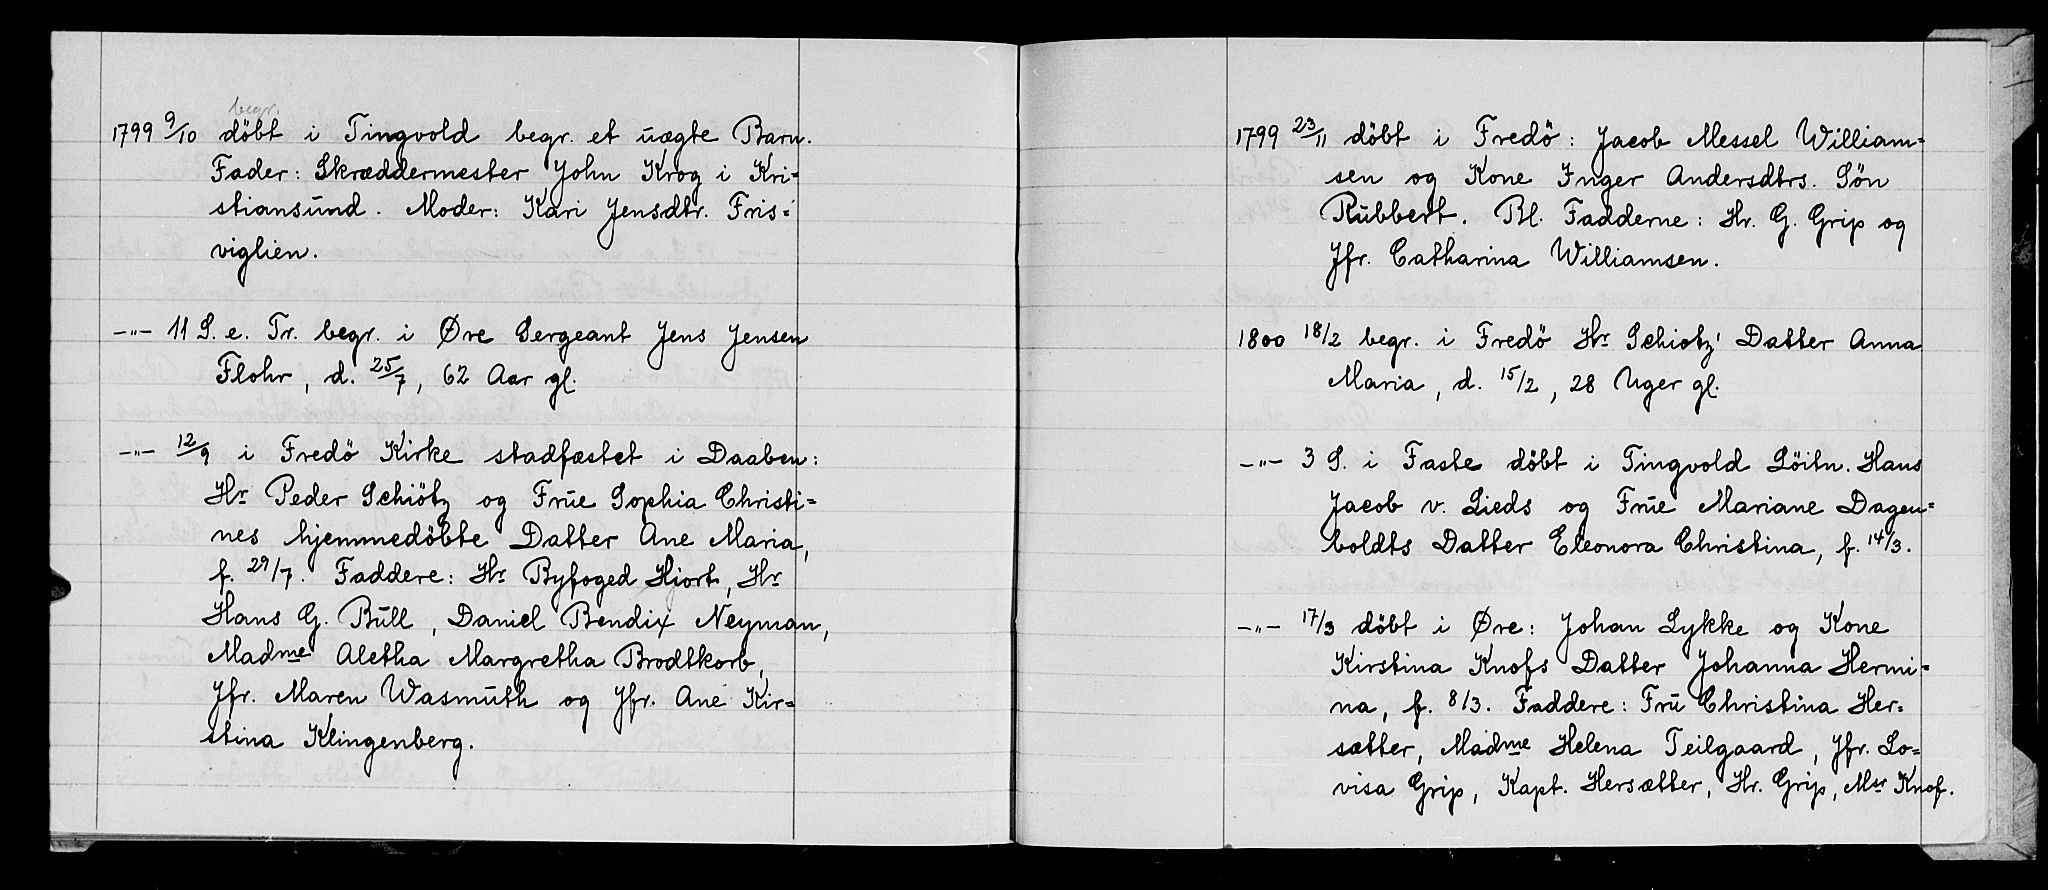 begr.
1799 9/10 döbt i Tingvold begr. et uægte Barn.
Fader: Skræddermester John Krog i Kri=
stiansund. Moder: Kari Jensdtr. Fris=
viglien.
—„— 11 S. e. Tr. begr. i Øre Sergeant Jens Jensen
Flohr, d. 25/7, 62 Aar gl.
—„— 12/9 i Fredö Kirke stadfæstet i Daaben:
Hr Peder Schiötz og Frue Sophia Christi=
nes hjemmedöbte Datter Ane Maria,
f. 29/7. Faddere: Hr Byfoged Hjort, Hr
Hans G. Bull, Daniel Bendix Neyman,
Madme Aletha Margretha Brodtkorb,
Jfr. Maren Wasmuth og Jfr. Ane Kir=
stina Klingenberg.
1799 23/11 döbt i Fredö: Jacob Messel William=
sen og Kone Inger Andersdtrs. Sön
Rubbert. Bl. Fadderne: Hr. G. Grip og
Jfr. Catharina Williamsen.
1800 18/2 begr. i Fredö Hr Schiotz' Datter Anna
Maria, d. 15/2, 28 Uger gl.
—„— 3 S. i Faste döbt i Tingvold Löitn. Hans
Jacob v. Lieds og Frue Mariane Dagen=
boldts Datter Eleonora Christina, f. 14/3.
—„— 17/3 döbt i Øre: Johan Lykke og Kone
Kirstina Knofs Datter Johanna Hermi=
na, f. 8/3. Faddere: Fru Christina Her=
sætter, Madme Helena Teilgaard, Jfr. Lo=
visa Grip, Kapt. Hersætter, Hr. Grip, Msr Knof.